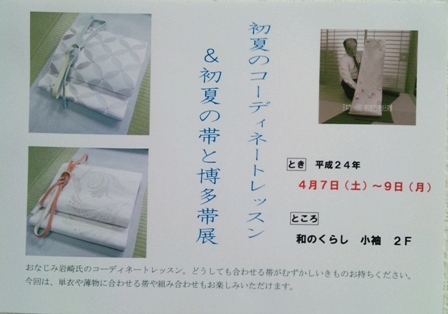 初夏のコーディネートレッスン
＆初夏の帯と博多帯展
とき　平成２４年
４月７日（土）～９日（月）
ところ
和のくらし　小袖　２Ｆ
おなじみ岩崎氏のコーディネートレッスン。どうしても合わせる帯がむずかしいきものお持ちください。
今回は、単衣や薄物に合わせる帯や組み合わせもお楽しみいただけます。